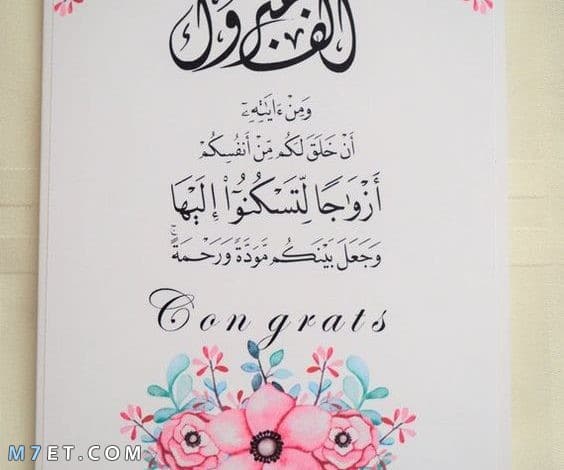 ألف مبروك
وَمِنْ ءَايَٰتِهِۦٓ
أَنْ خَلَقَ لَكُم مِّنْ أَنفُسِكُمْ
أَزْوَٰجًا لِّتَسْكُنُوٓا۟ إِلَيْهَا
وَجَعَلَ بَيْنَكُم مَّوَدَّةً وَرَحْمَةً ۚ
Congrats
M7ET.COM